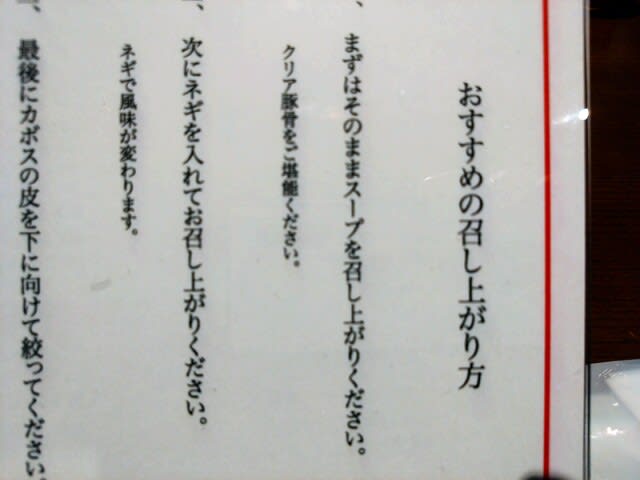 おすすめの召し上がり方
、まずはそのままスープを召し上がりください。
クリア豚骨をご堪能ください。
、次にネギを入れてお召し上がりください。
ネギで風味が変わります。
、最後にカボスの皮を下に向けて絞ってください。